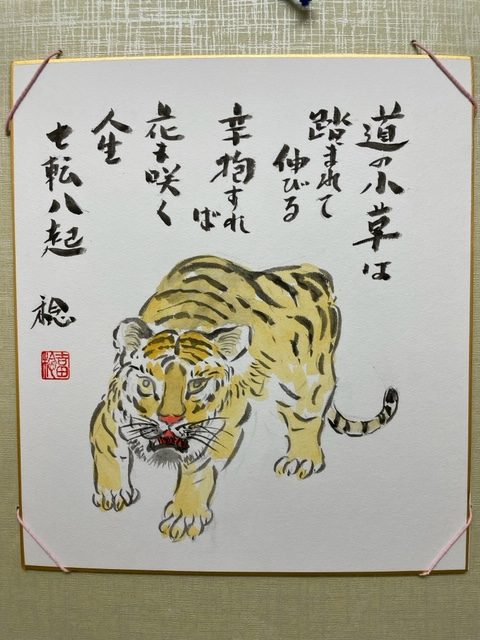 道の小草は
踏まれて
伸びる
辛抱すれ
ば
花も咲く
人生
七転八起
稔